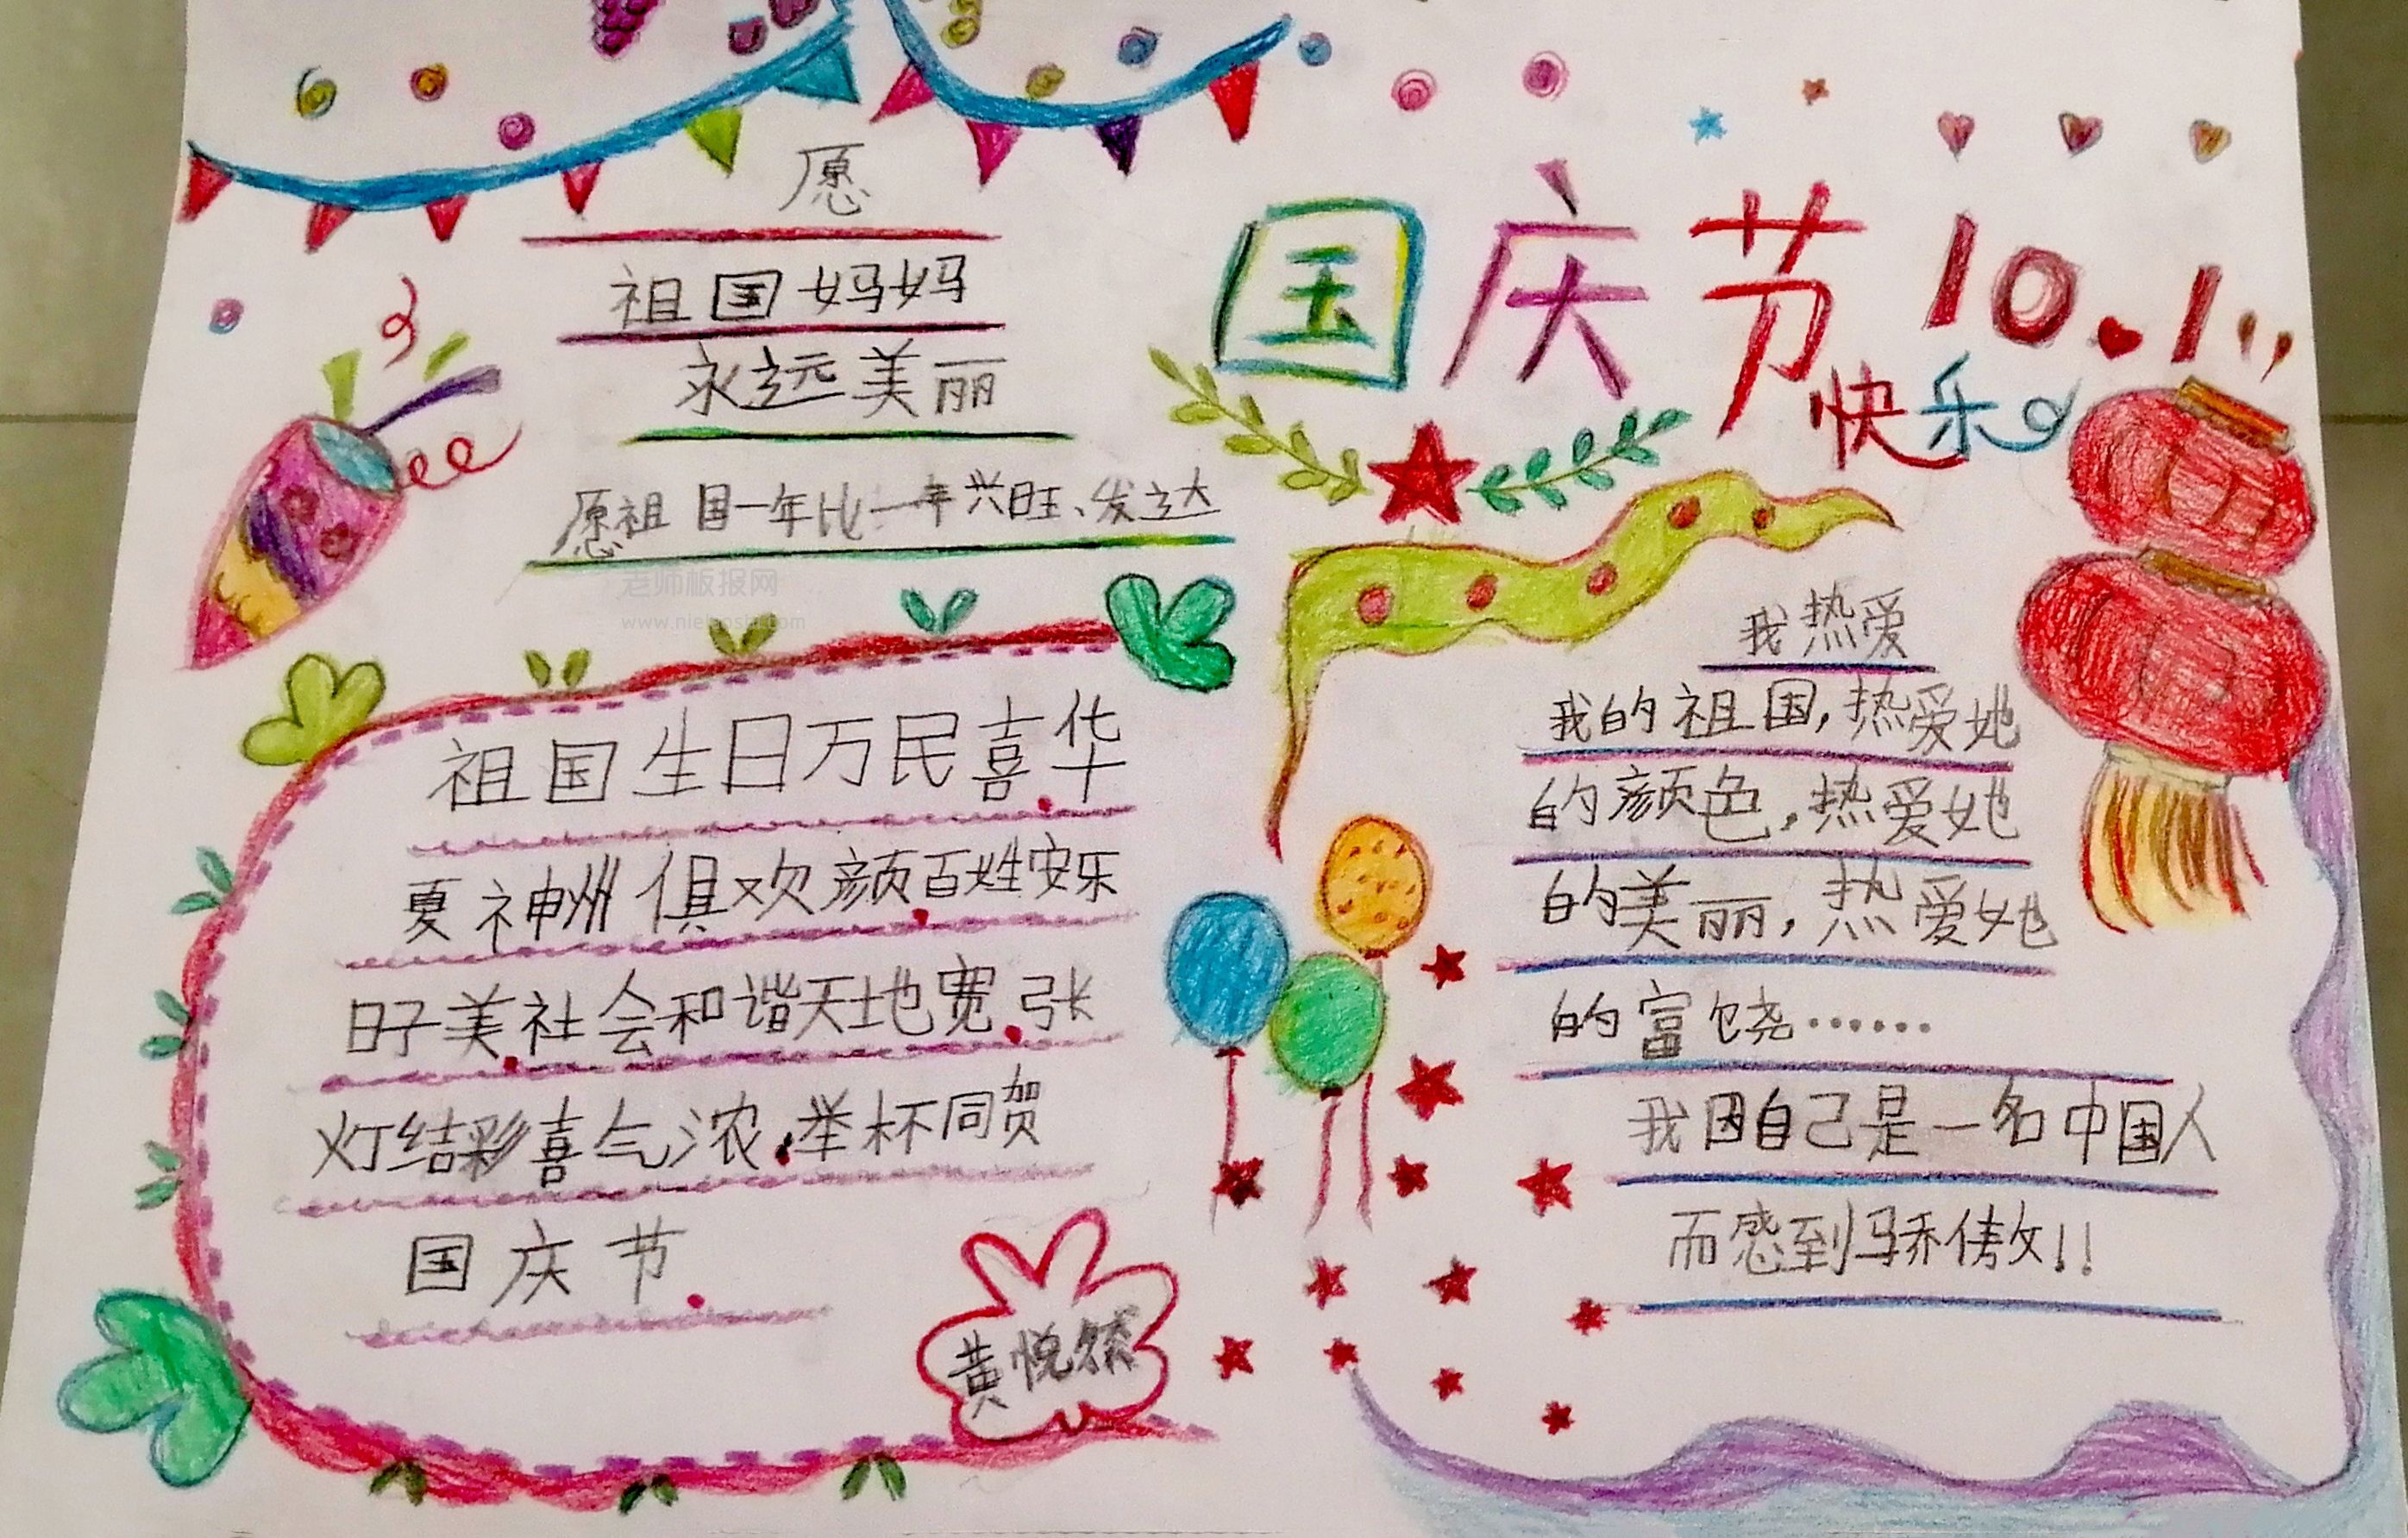 愿
祖国妈妈
永远美丽
愿祖国一年比一年兴旺、发达
老师板报网
国庆节 10.1
快乐
祖国生日万民喜.华
夏神洲俱欢颜.百姓安乐
日子美.社会和谐天地宽.张
灯结彩喜气浓.举杯同贺
国庆节.
黄悦
我热爱
我的祖国,热爱她
的颜色,热爱她
的美丽,热爱她
的富饶……
我因自己是一名中国人
而感到骄傲!!